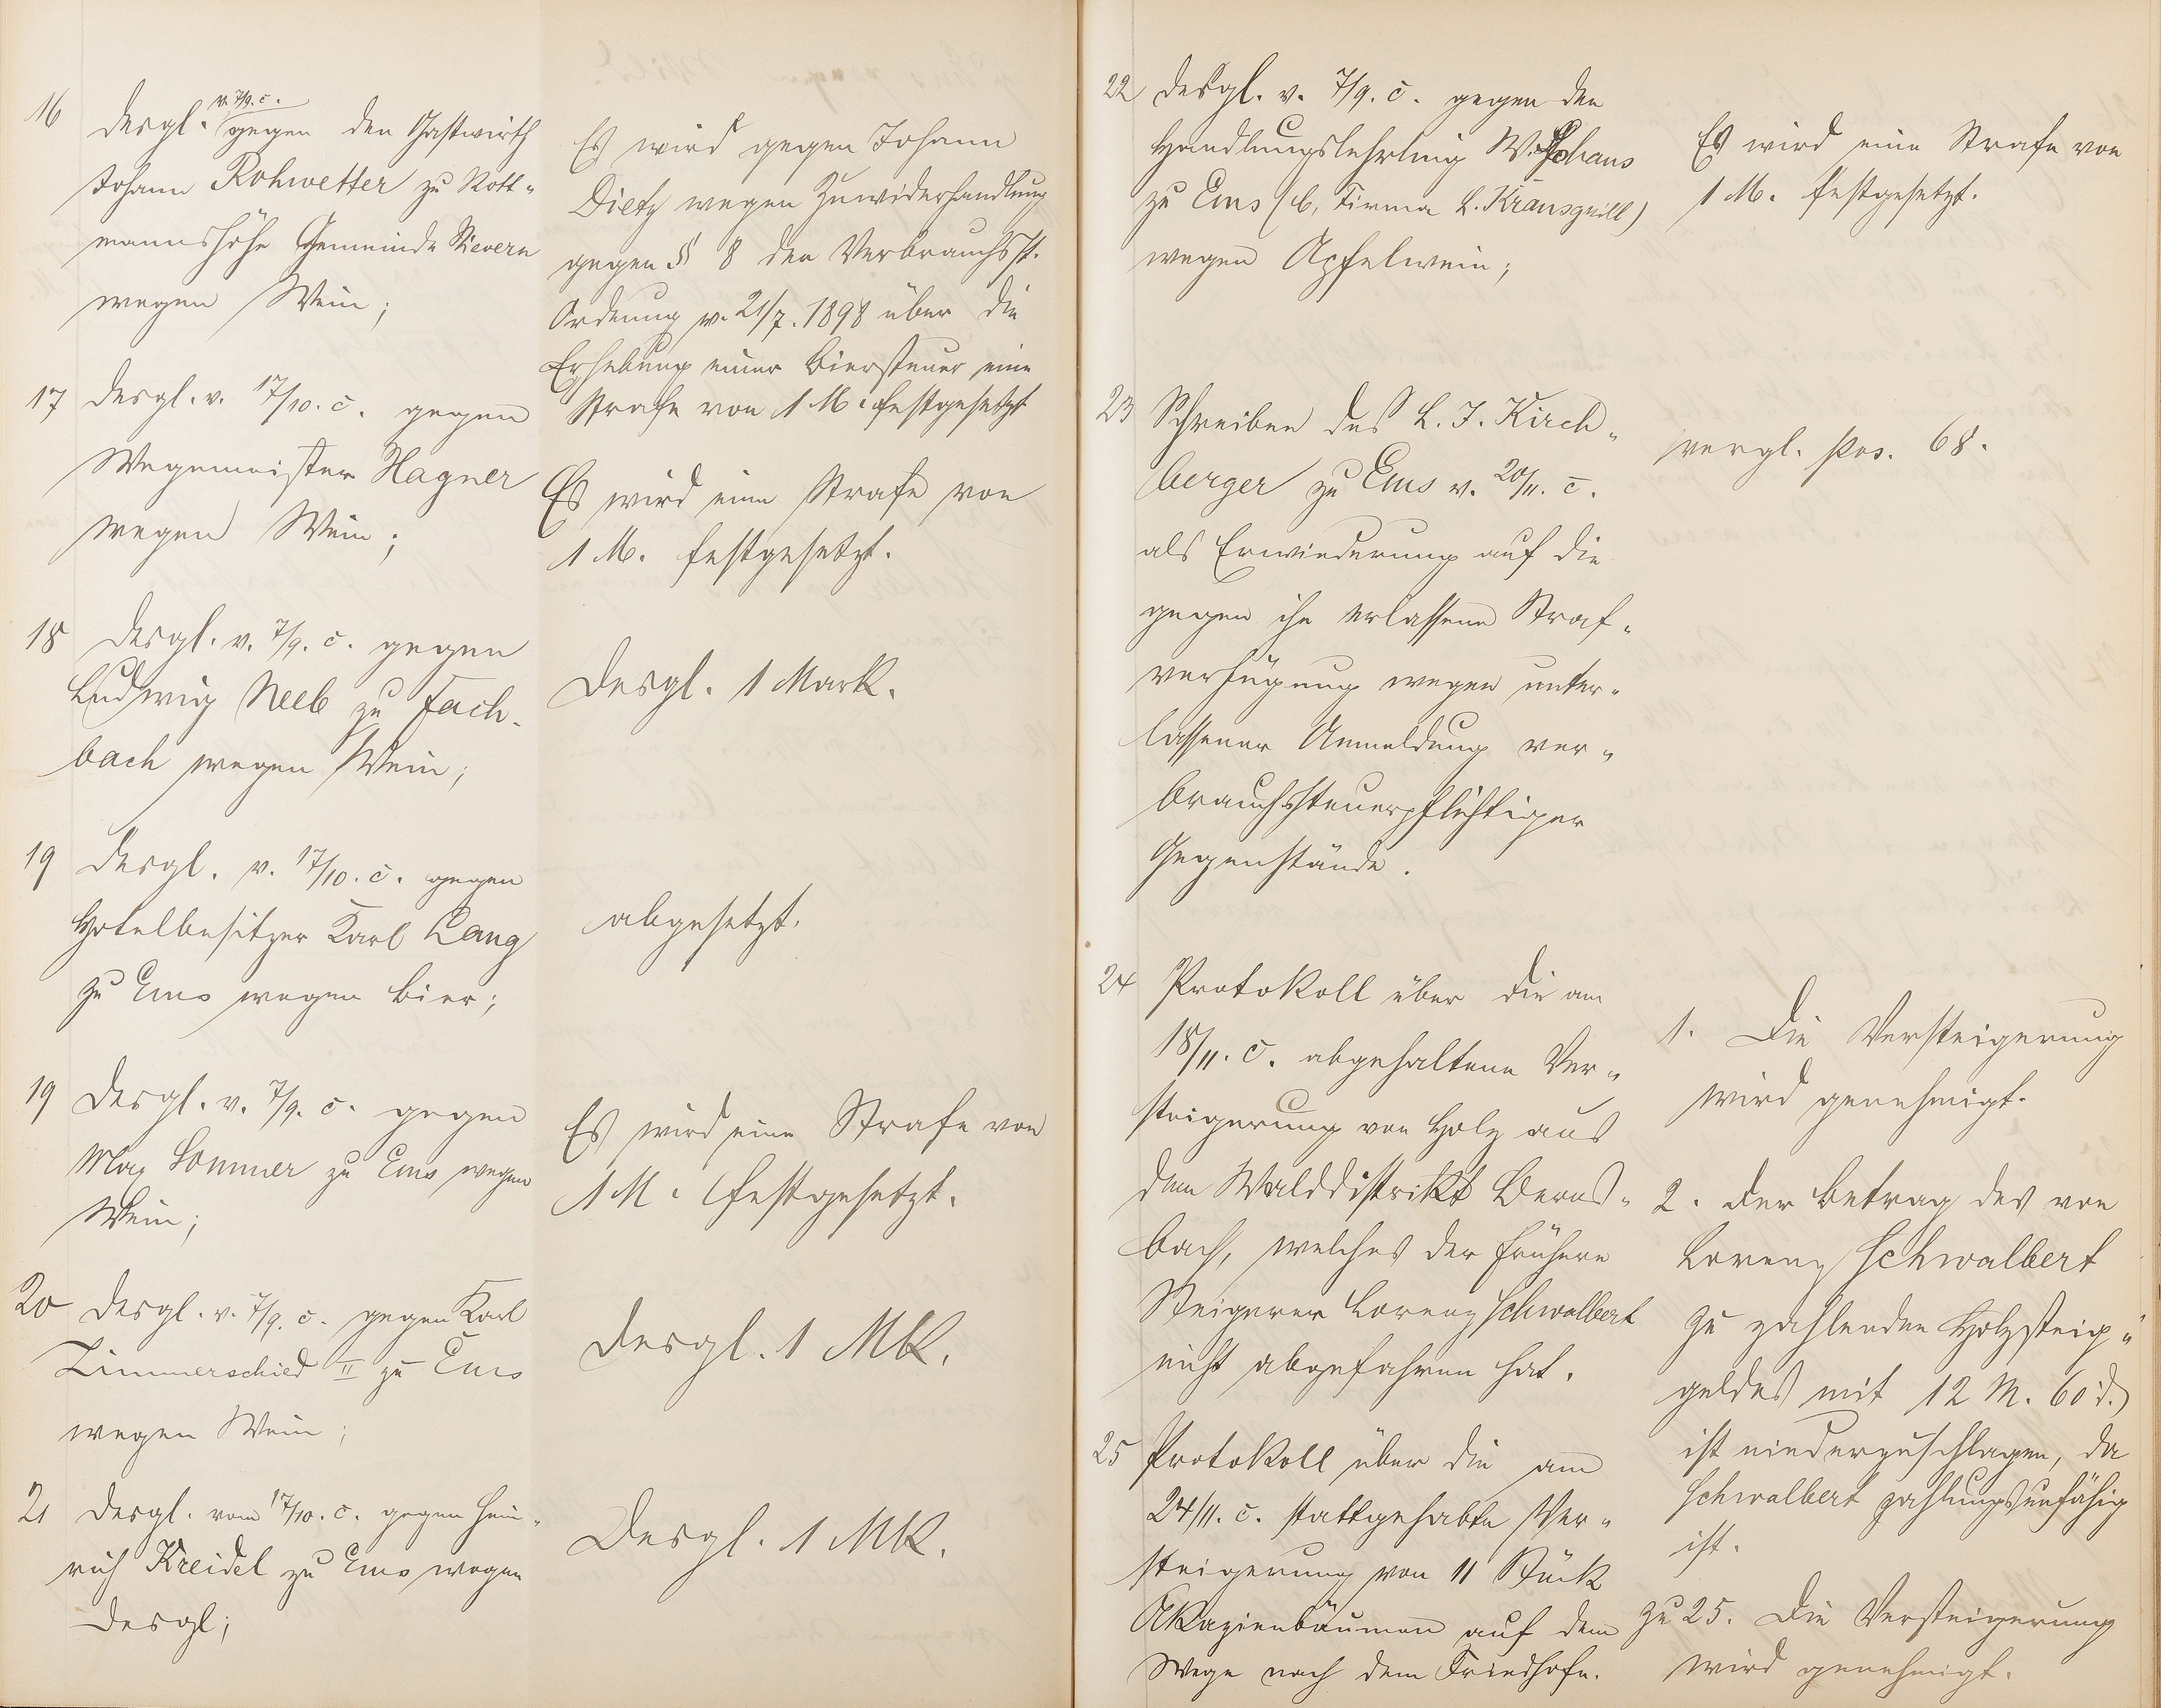 16 desgl. v. 7/9. c. gegen den Gastwirth
Johann Rohwetter zu Kott-
mannshöhe Gemeinde Nievern
wegen Wein;
Es wird gegen Johann
Dietz wegen Zuwiderhandlung
gegen § 8 der Verbrauchsst.
Ordnung v. 21/7. 1898 über die
Erhebung einer Biersteuer eine
Strafe von 1 M. festgesetzt
17 desgl. v. 17/10. c. gegen
Wegemeister Hagner
wegen Wein;
Es wird eine Strafe von
1 M. festgesetzt.
18 desgl. v. 7/9. c. gegen
Ludwig Neeb zu Fach-
bach wegen Wein;
desgl. 1 Mark.
19 desgl. v. 17/10. c. gegen
Hotelbesitzer Karl Lang
zu Ems wegen Bier;
abgesetzt.
19 desgl. v. 7/9. c. gegen
Max Sommer zu Ems wegen
Wein;
Es wird eine Strafe von
1 M. festgesetzt.
20 desgl. v. 7/9. c. gegen Karl
Linnerschied II zu Ems
wegen Wein;
desgl. 1 Mk.
21 desgl. vom 17/10. c. gegen Hein-
rich Kreidel zu Ems wegen
desgl;
Desgl. 1 Mk.
22 desgl. v. 7/9. c. gegen den
Handlungslehrling W. Schaus
zu Ems (b. Firma L. Kransgrill)
wegen Apfelwein;
Es wird eine Strafe von
1 M. festgesetzt.
23 Schreiben des L. J. Kirch-
berger zu Ems v. 20/11. c.
als Erwiederung auf die
gegen ihn erlassene Straf-
verfügung wegen unter-
lassener Anmeldung ver-
brauchssteuerpflichtiger
Gegenstände.
vergl. pos. 68.
24 Protokoll über die am
18/11. c. abgehaltene Ver-
steigerung von Holz aus
dem Walddistrikt Berns-
bach, welches der frühere
Steigerer Lorenz Schwalbert
nicht abgefahren hat.
1. Die Versteigerung
wird genehmigt.
2. Der Betrag des von
Lorenz Schwalbert
zu zahlenden Holzsteig-
geldes mit 12 M. 60 d.
ist niederzuschlagen, da
Schwalbert zahlungsunfähig
ist.
25 Protokoll über die am
24/11. c. stattgehabte Ver-
steigerung von 11 Stück
Akazienbäumen auf dem
Wege nach dem Friedhofe.
zu 25. Die Versteigerung
wird genehmigt.